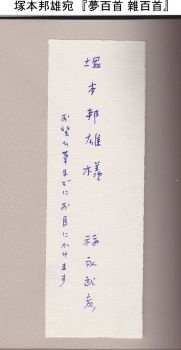 塚本邦雄宛 『夢百首 雜百首』
塚本邦雄様
福永武彦
お笑ひ草までにお目にかけます